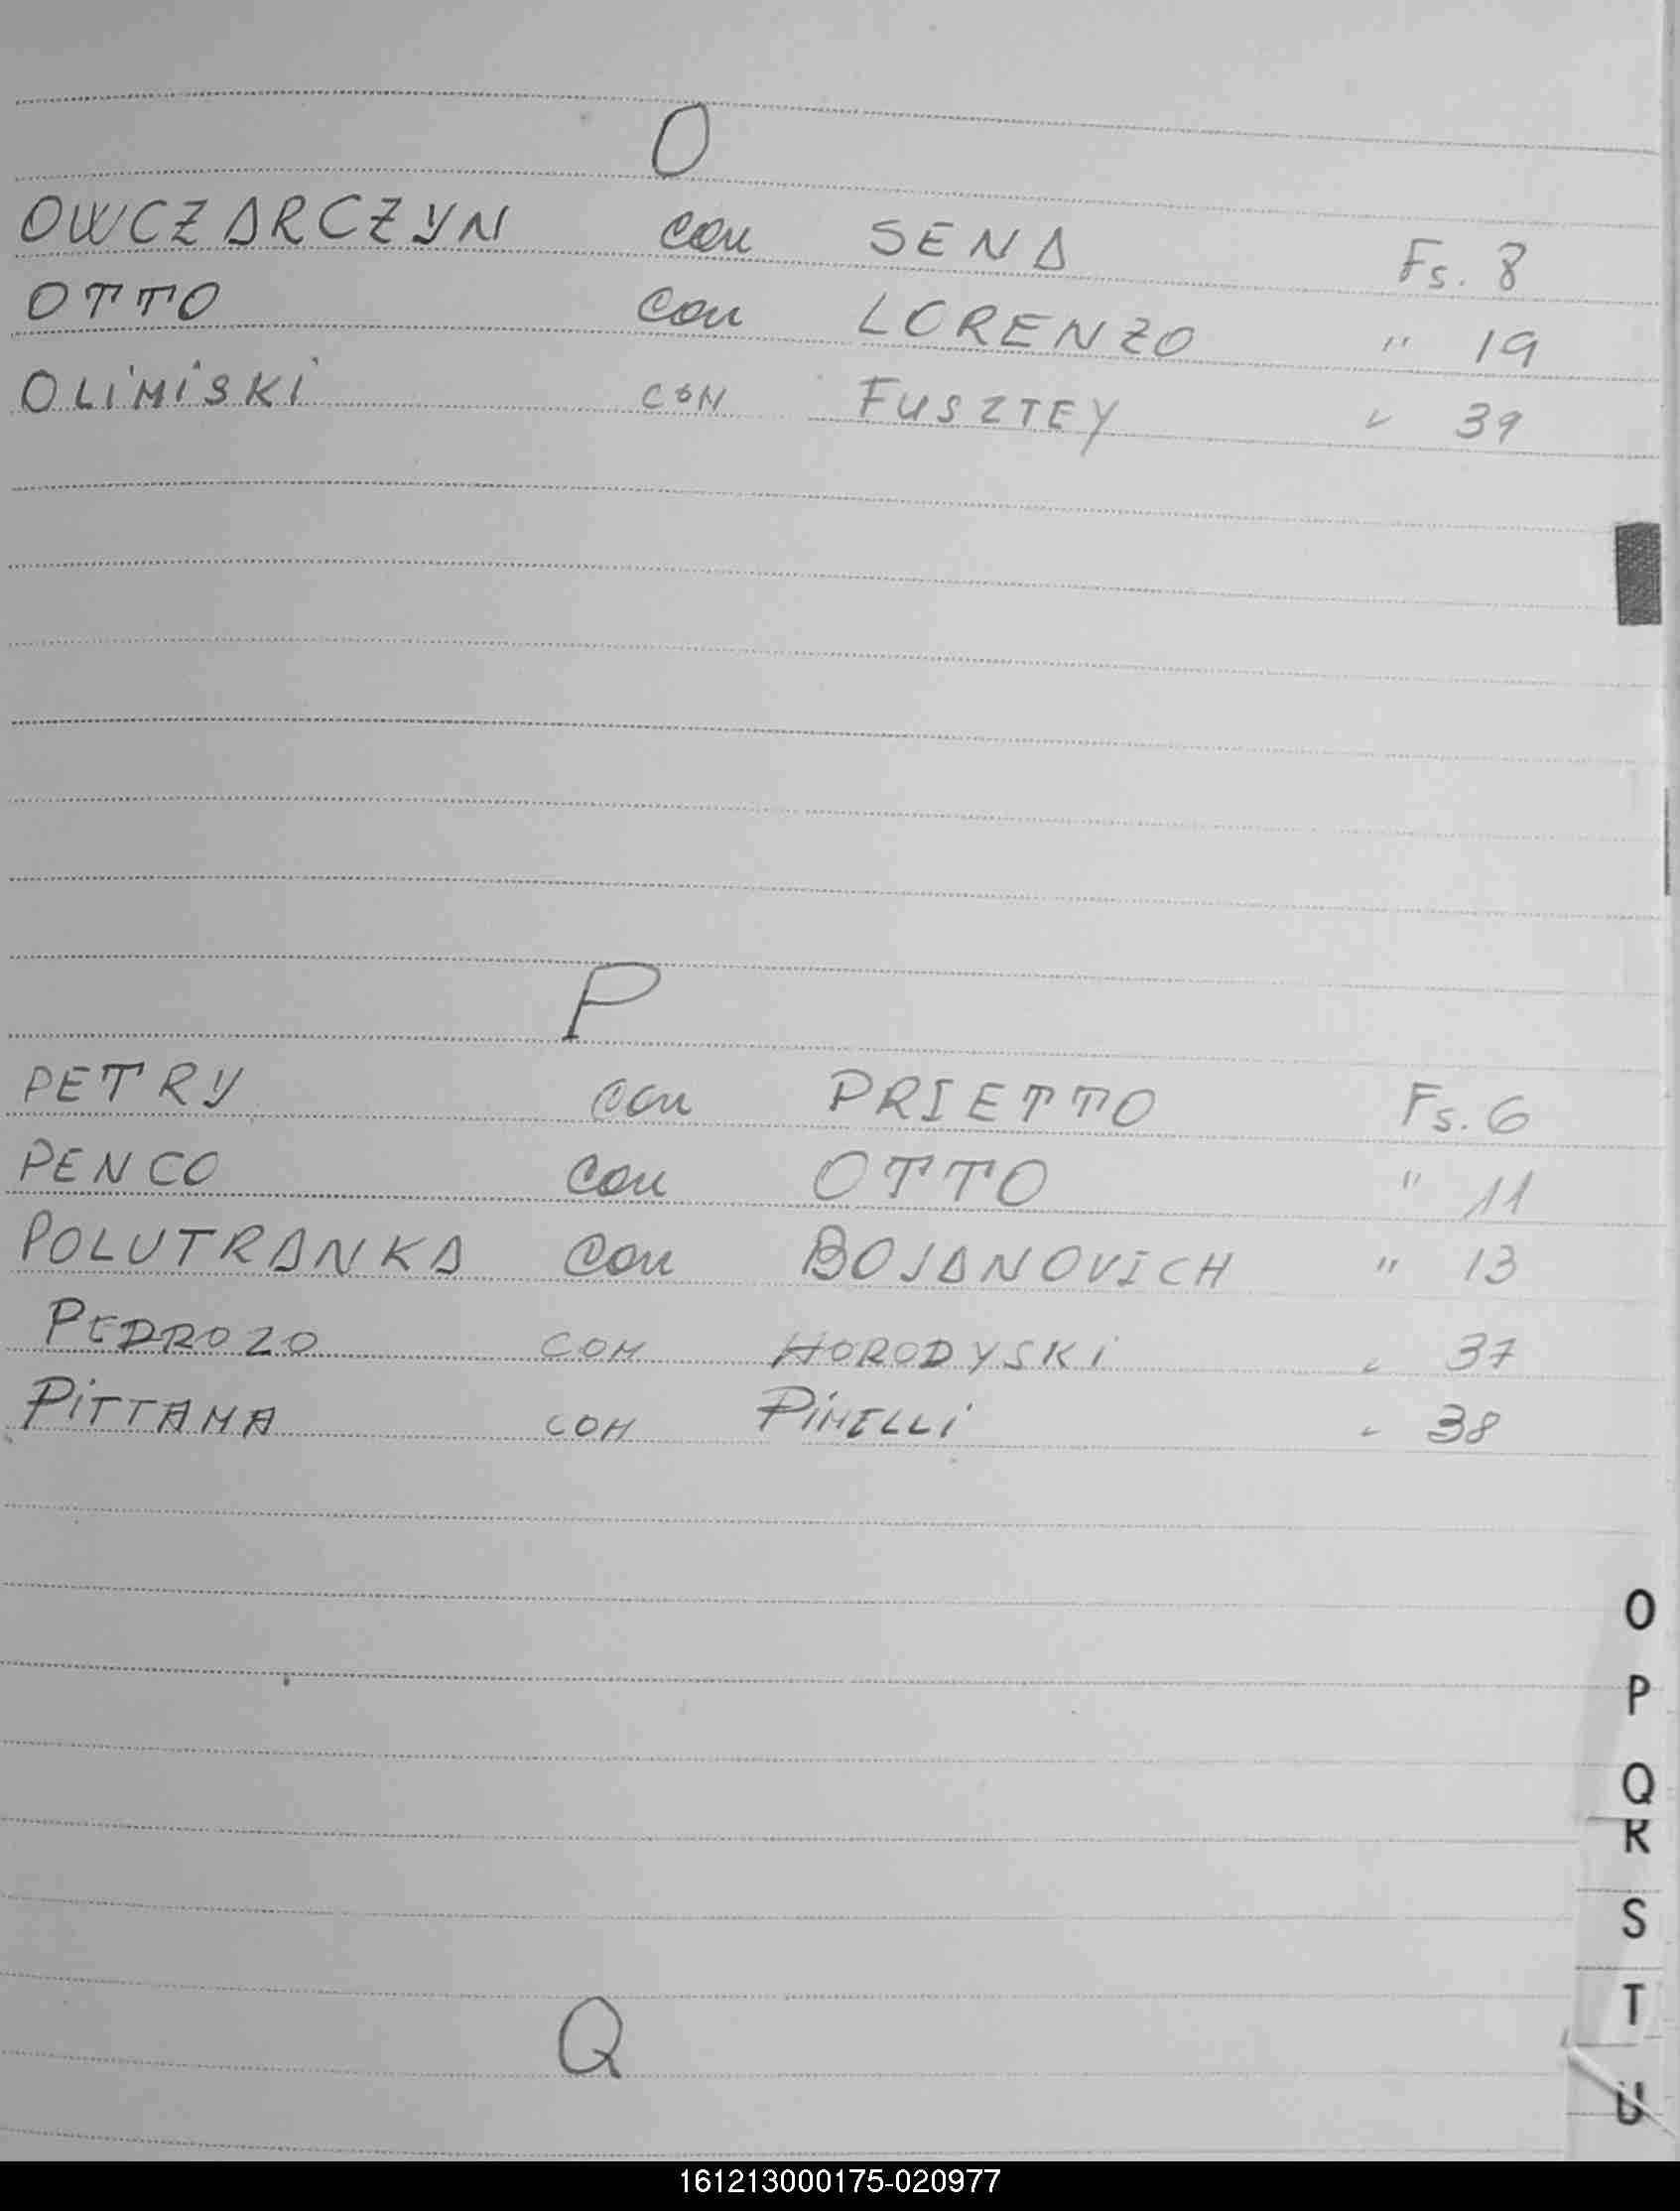 O
OWCZARCZYN con SENA Fs. 8
OTTO con LORENZO " 19
OLIMISKI CON FUSZTEY " 39
P
PETRY con PRIETTO Fs. 6
PENCO con OTTO " 11
POLUTRANKA con BOJANOVICH " 13
PEDROZO CON HORODYSKI " 37
PITTANA CON PINELLI " 38
O
P
Q
R
S
T
U
Q
161213000175-020977